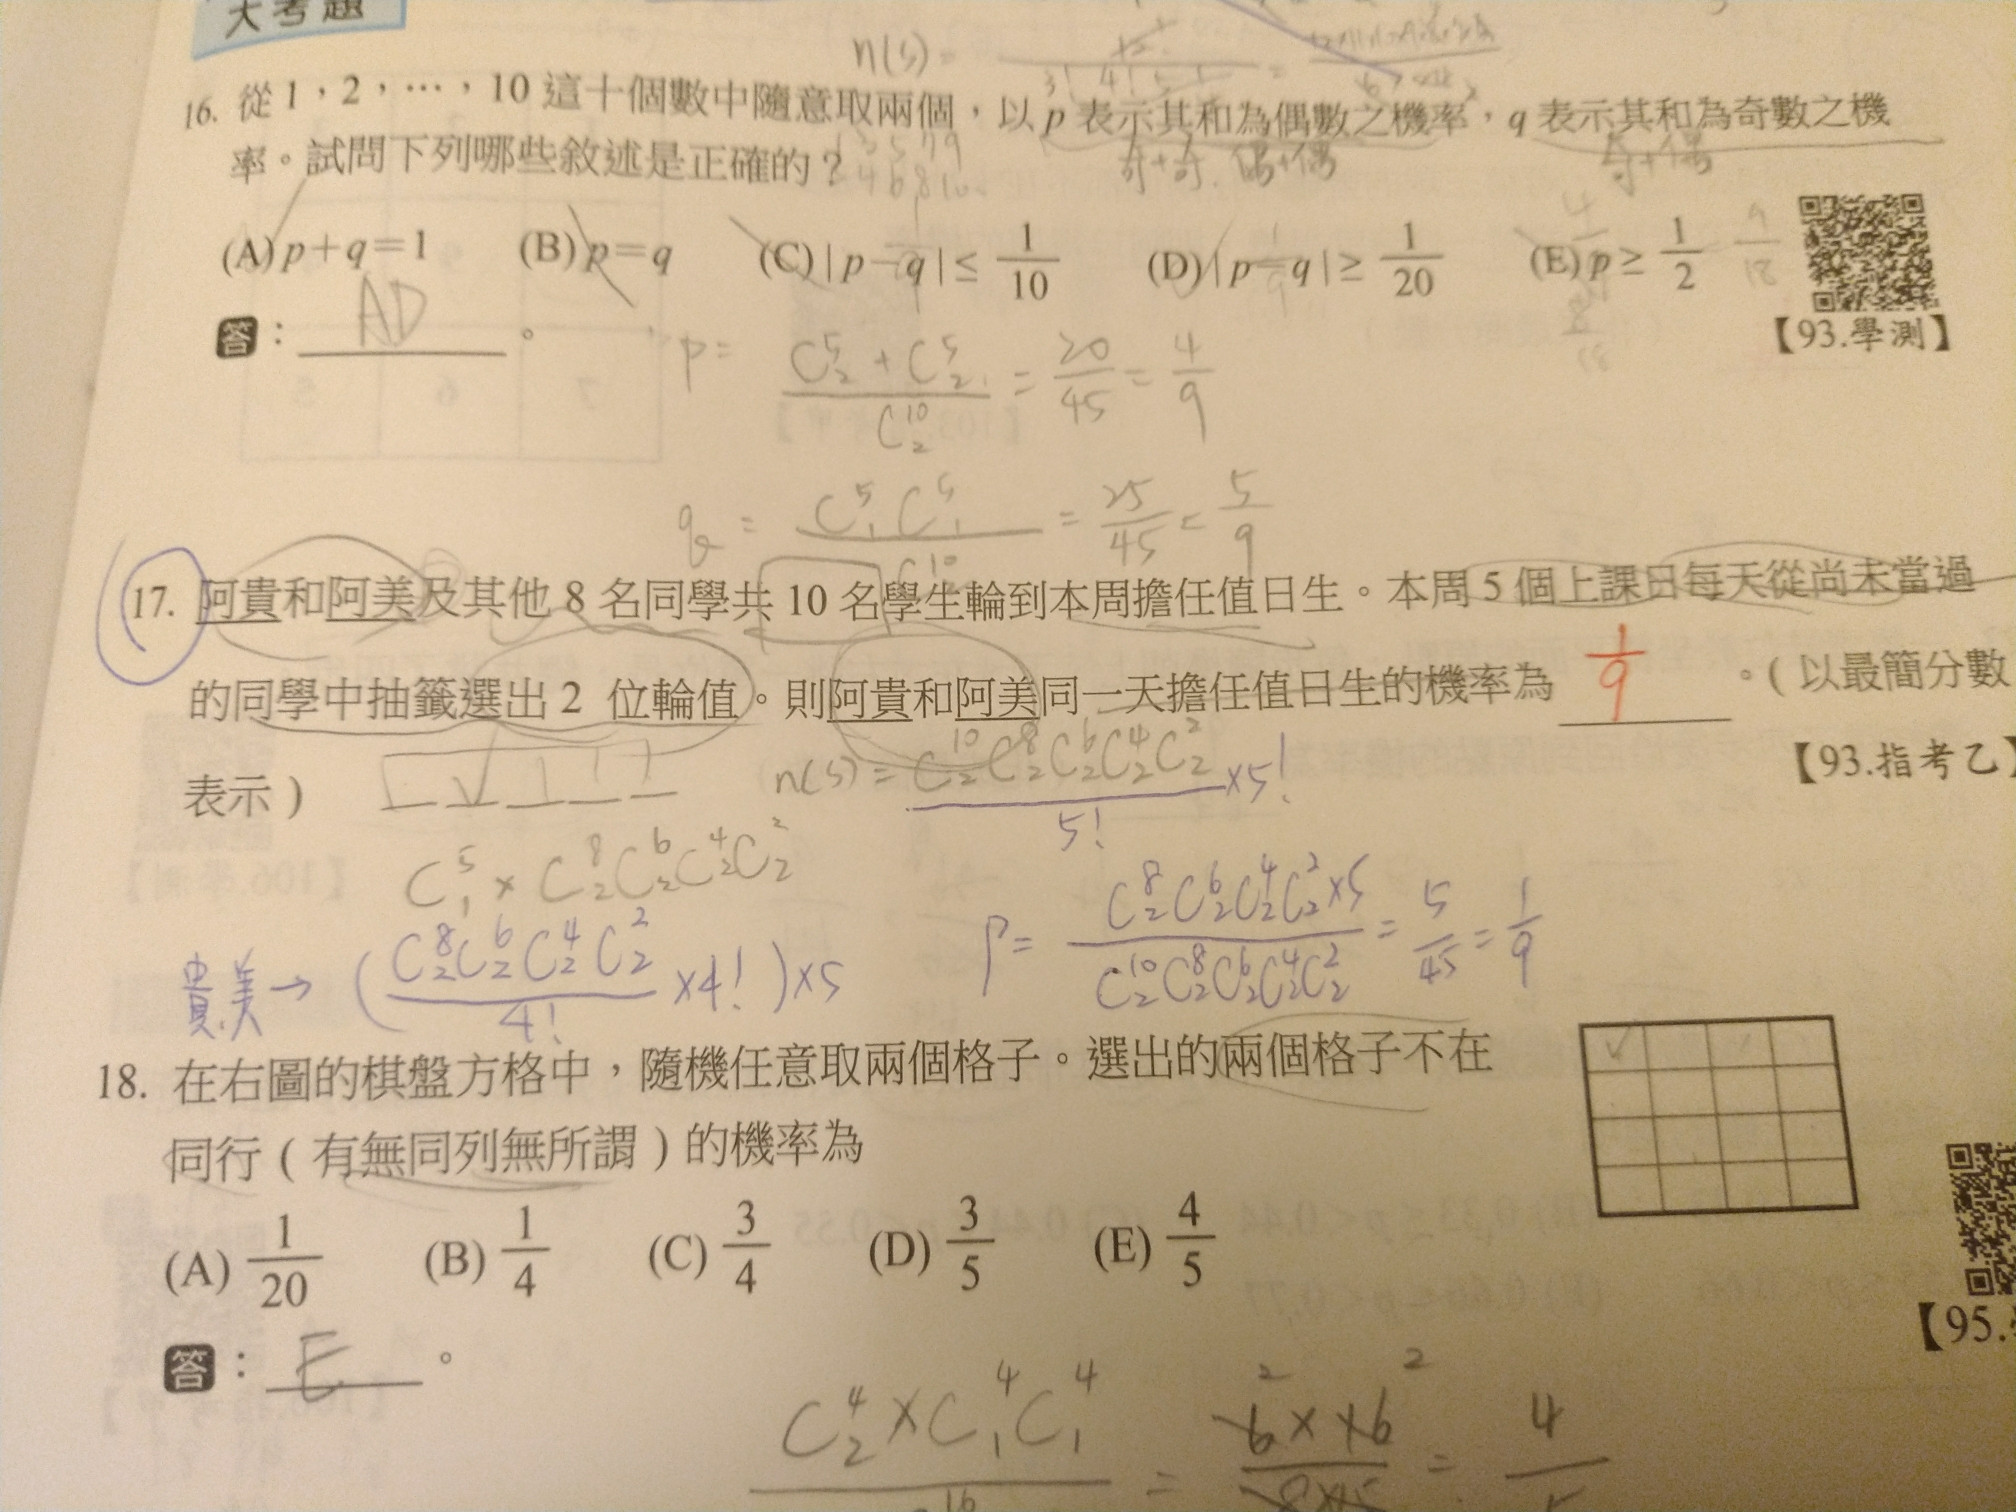 大考題
n(s) =
16. 從 1，2，…，10 這十個數中隨意取兩個，以 p 表示其和為偶數之機率，q 表示其和為奇數之機
率。試問下列哪些敘述是正確的？
奇+奇. 偶+偶
奇+偶
(A) p+q=1 (B) p=q (C) |p−q| ≤ 1/10 (D) |p−q| ≥ 1/20 (E) p ≥ 1/2
答： AD 。
【93.學測】
p = (C⁵₂ + C⁵₂)/C¹⁰₂ = 20/45 = 4/9
q = C⁵₁ C⁵₁/C¹⁰₂ = 25/45 = 5/9
17. 阿貴和阿美及其他 8 名同學共 10 名學生輪到本周擔任值日生。本周 5 個上課日每天從尚未當過
的同學中抽籤選出 2 位輪值。則阿貴和阿美同一天擔任值日生的機率為 1/9 。( 以最簡分數
表示 )
【93.指考乙】
n(s) = C¹⁰₂C⁸₂C⁶₂C⁴₂C²₂/5! ×5!
C⁵₁ × C⁸₂C⁶₂C⁴₂C²₂
貴.美→ (C⁸₂C⁶₂C⁴₂C²₂/4! ×4!)×5
P = C⁸₂C⁶₂C⁴₂C²₂×5/C¹⁰₂C⁸₂C⁶₂C⁴₂C²₂ = 5/45 = 1/9
18. 在右圖的棋盤方格中，隨機任意取兩個格子。選出的兩個格子不在
同行 ( 有無同列無所謂 ) 的機率為
(A) 1/20 (B) 1/4 (C) 3/4 (D) 3/5 (E) 4/5
答： E 。
【95.
C⁴₂×C⁴₁C⁴₁